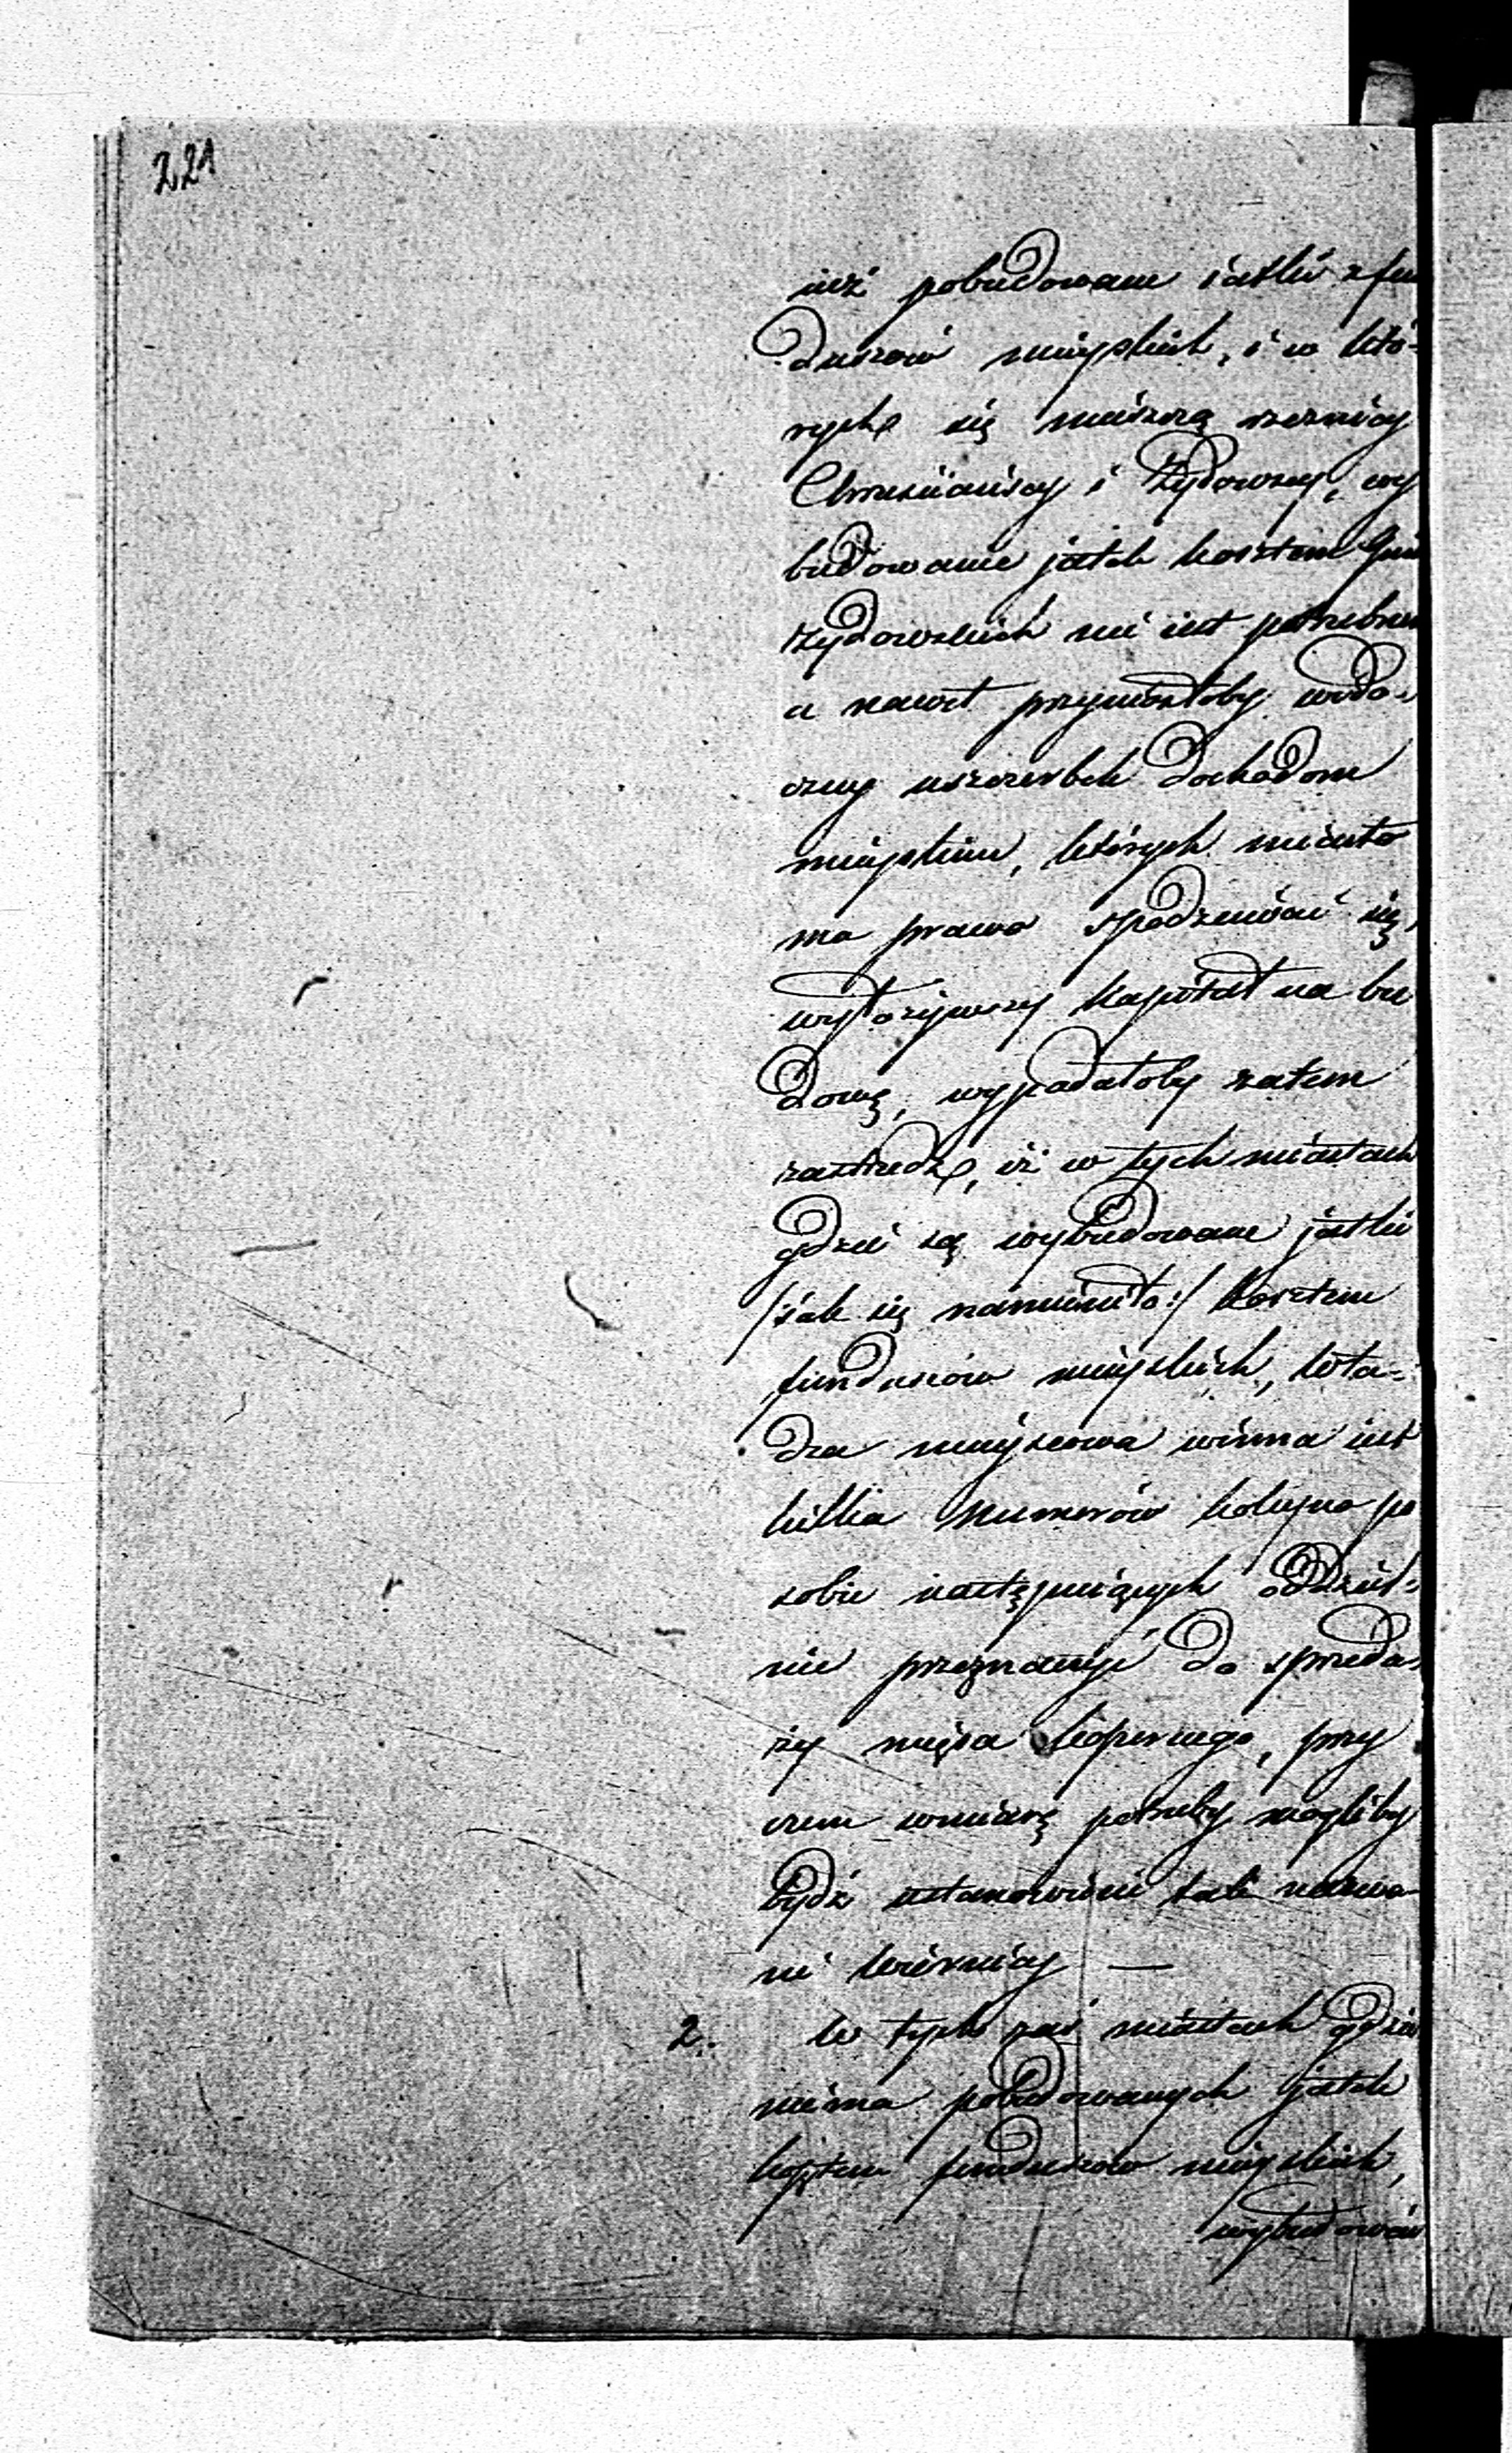 221
iuż pobudowane iatki z fu
duszów mieyskich, i w któ-
rych się mieszczą rzeznicy
Chrześciańscy i Żydowscy, wy
budowanie jatek kosztem Gmin
żydowskich nie iest potrzebne
a nawet przyniosłoby wido-
czny uszczerbek dochodom
mieyskim, których miasto
ma prawo spodziewać się,
wyłożywszy kapitał na bu
dowę, wypadałoby zatem
zastrzedz, iż w tych miastach
gdzie są wybudowane jatki
/:iak się namieniło:/ kosztem
funduszów mieyskich, Wła-
dza mieyscowa winna iest
kilka Numerów koleyno po
sobie następuiących oddziel-
nie przeznaczyć do sprzeda-
ży mięsa koszernego, przy
czem wmiarę potrzeby mogliby
bydź ustanowieni tak nazwa-
ni wiernicy —
2. W tych zaś miastach gdzie
niema pobudowanych jatek
kosztem funduszów mieyskich,
wybudowan